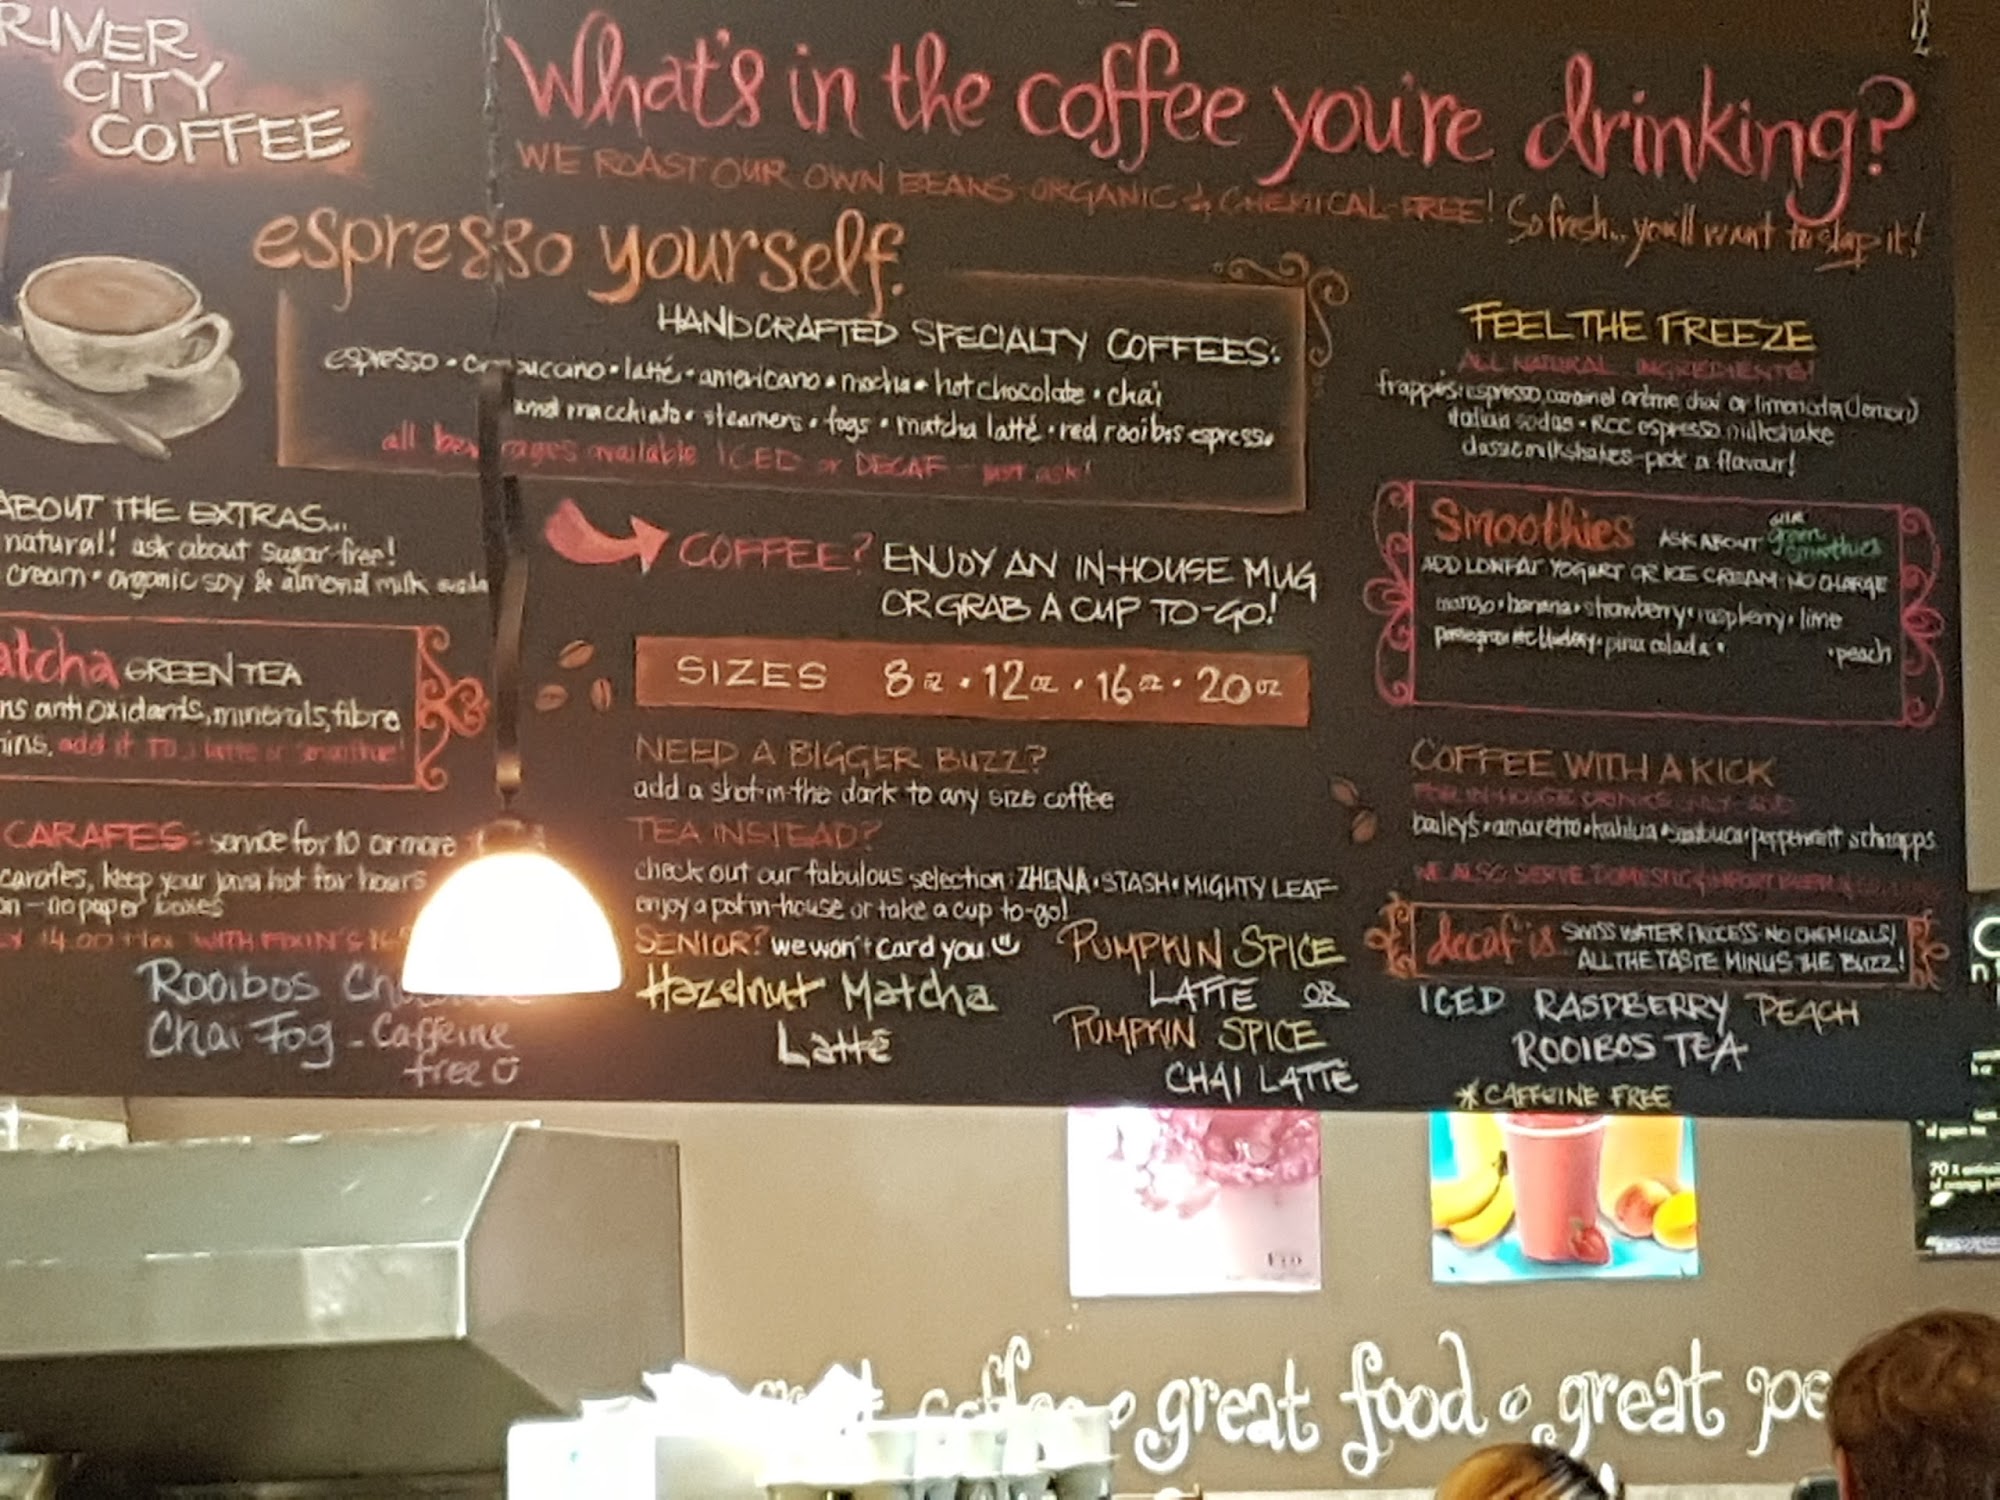 RIVER
CITY
COFFEE
What's in the coffee you're drinking?
WE ROAST OUR OWN BEANS-ORGANIC & CHEMICAL-FREE! So fresh... you'll want to slap it!
espresso yourself.
HANDCRAFTED SPECIALTY COFFEES:
espresso • latté • americano • mocha • hot chocolate • chai
macchiato • steamers • fogs • matcha latté • red rooibos espresso
all beverages available ICED or DECAF - just ask!
ABOUT THE EXTRAS...
natural! ask about sugar-free!
cream • organic soy & almond milk
GREEN TEA
antioxidants, minerals, fibre
add it to a latte or smoothie!
CARAFES - service for 10 or more
carafes, keep your java hot for hours
no paper boxes
WITH FIXIN'S
Rooibos
Chai Fog - Caffeine
free
COFFEE? ENJOY AN IN-HOUSE MUG
OR GRAB A CUP TO-GO!
SIZES 8oz • 12oz • 16oz • 20oz
NEED A BIGGER BUZZ?
add a shot-in-the dark to any size coffee
TEA INSTEAD?
check out our fabulous selection: ZHENA • STASH • MIGHTY LEAF
enjoy a pot in-house or take a cup to-go!
SENIOR? we won't card you
Hazelnut Matcha
Latté
PUMPKIN SPICE
LATTE OR
PUMPKIN SPICE
CHAI LATTE
FEEL THE FREEZE
ALL NATURAL INGREDIENTS!
frappés: espresso, caramel crème, chai or limonata (lemon)
italian sodas • RCC espresso milkshake
classic milkshakes - pick a flavour!
Smoothies ASK ABOUT our green smoothies
ADD LOWFAT YOGURT OR ICE CREAM - NO CHARGE
mango • banana • strawberry • raspberry • lime
pina colada • • peach
COFFEE WITH A KICK
bailey's • amaretto • kahlua • sambuca • peppermint schnapps
decaf is SWISS WATER PROCESS - NO CHEMICALS!
ALL THE TASTE MINUS THE BUZZ!
ICED RASPBERRY PEACH
ROOIBOS TEA
* CAFFEINE FREE
great food
great